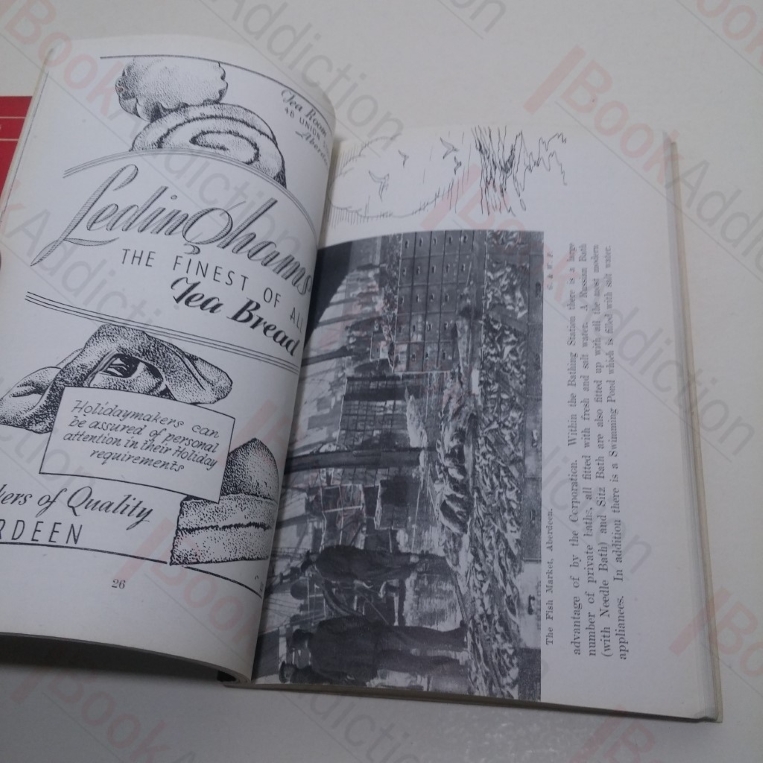 Tea Room
40 UNION
Aberd
Ledinghams
THE FINEST OF ALL
Tea Bread
Holidaymakers can
be assured of personal
attention in their Holiday
requirements
kers of Quality
RDEEN
26
The Fish Market, Aberdeen.
advantage of by the Corporation. Within the Bathing Station there is a large
number of private baths, all fitted with fresh and salt water. A Russian Bath
(with Needle Bath) and Sitz Bath are also fitted up with all the most modern
appliances. In addition there is a Swimming Pond which is filled with salt water.
BookAddiction